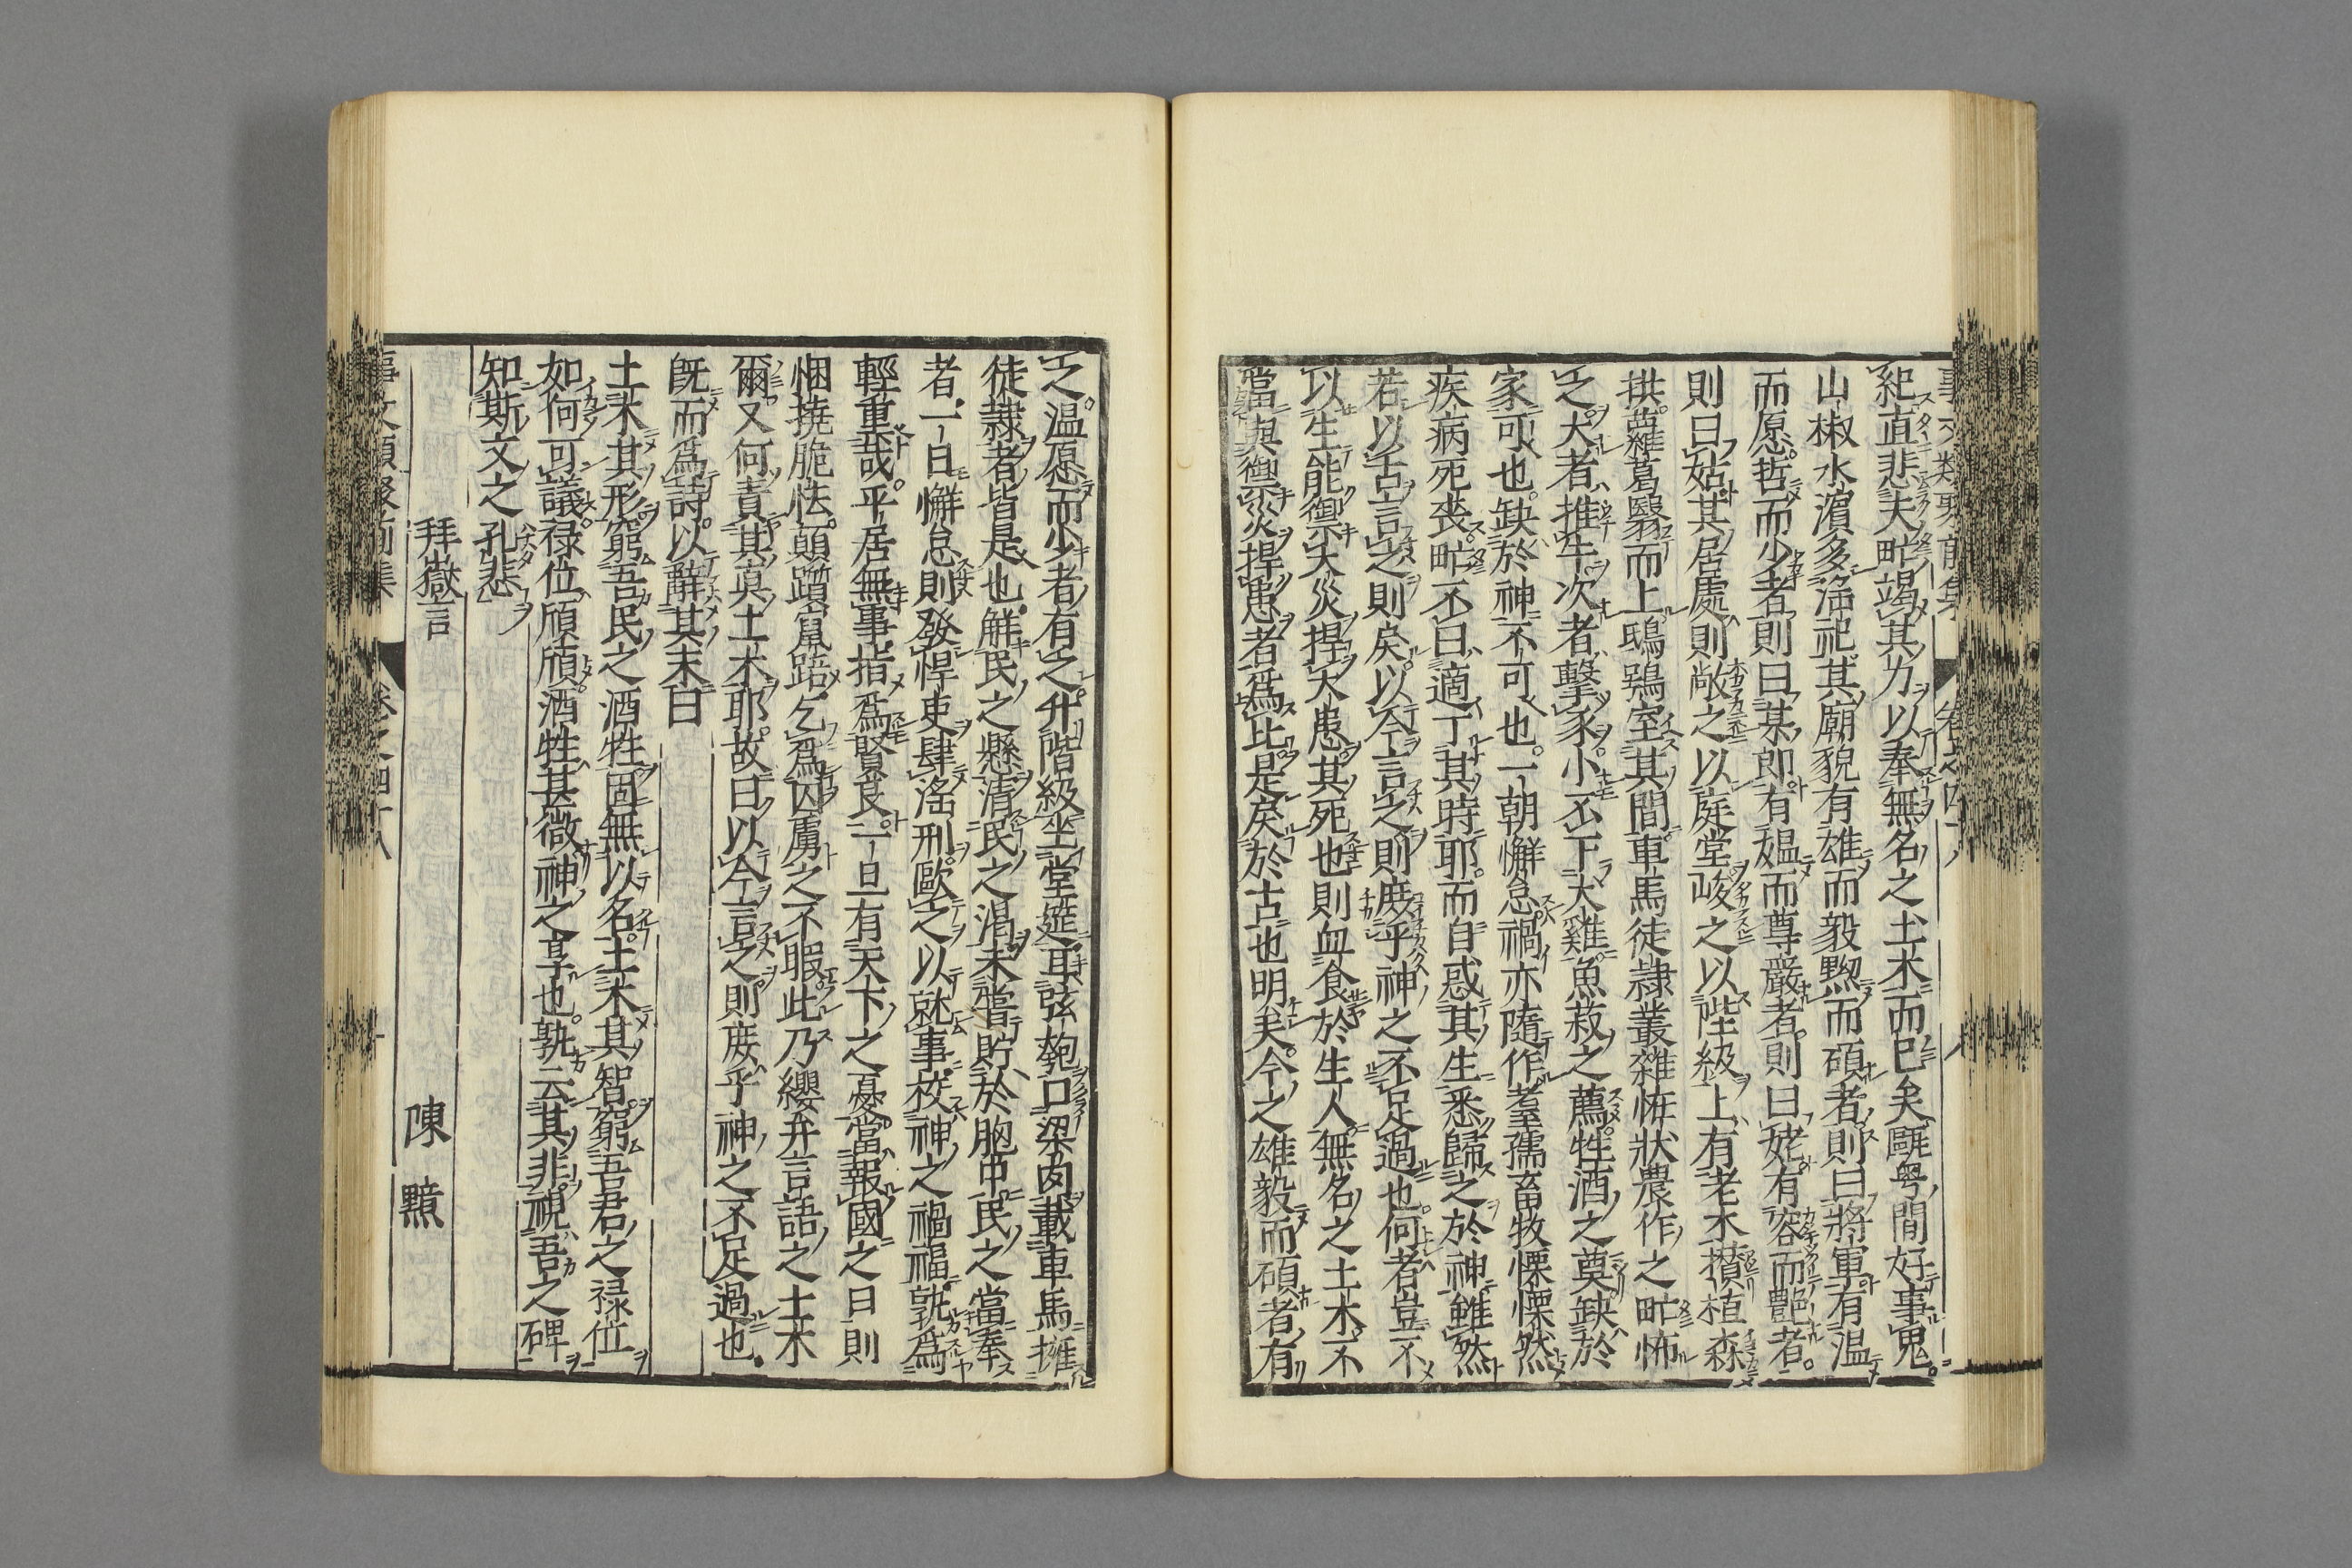 事文類聚前集 卷之四十八
紀直悲夫甿竭其力以奉無名之土木而已矣甌粤間好事鬼
山椒水濵多淫祀其廟貌有雄而毅黝而碩者則曰將軍有温
而愿哲而少者則曰某郎有媼而尊嚴者則曰姥有容而艶者
則曰姑其居處則敞之以庭堂峻之以陛級上有老木攅植森
拱蘿葛翳而上鴟鴞室其間車馬徒隷叢雜恠狀農作之甿怖
之大者推牛次者擊豕小不下犬雞魚菽之薦牲酒之奠缺於
家可也缺於神不可也一朝懈怠禍亦隨作耋孺畜牧慄慄然
疾病死喪甿不曰適丁其時耶而自惑其生悉歸之於神雖然
若以古言之則戾以今言之則庻乎神之不足過也何者豈不
以生能禦大災捍大患其死也則血食於生人無名之土木不
當與禦災捍患者爲比是戾於古也明矣今之雄毅而碩者有
之温愿而少者有之升階級坐堂筵耳弦匏口梁肉載車馬擁
徒隷者皆是也解民之懸清民之渇未嘗貯於胸中民之當奉
者一日懈怠則發悍吏肆淫刑歐之以就事校神之禍福孰爲
輕重哉平居無事指爲賢良一旦有天下之憂當報國之日則
悃撓脆怯顛躓竄踣乞爲囚虜之不暇此乃纓弁言語之土木
爾又何責其真土木耶故曰以今言之則庻乎神之不足過也
既而爲詩以辭其末曰
土木其形窮吾民之酒牲固無以名土木其智窮吾君之禄位
如何可議禄位頎頎酒牲甚微神之享也孰云其非視吾之碑
知斯文之孔悲
拜嶽言 陳黯
事文類聚前集 卷之四十八